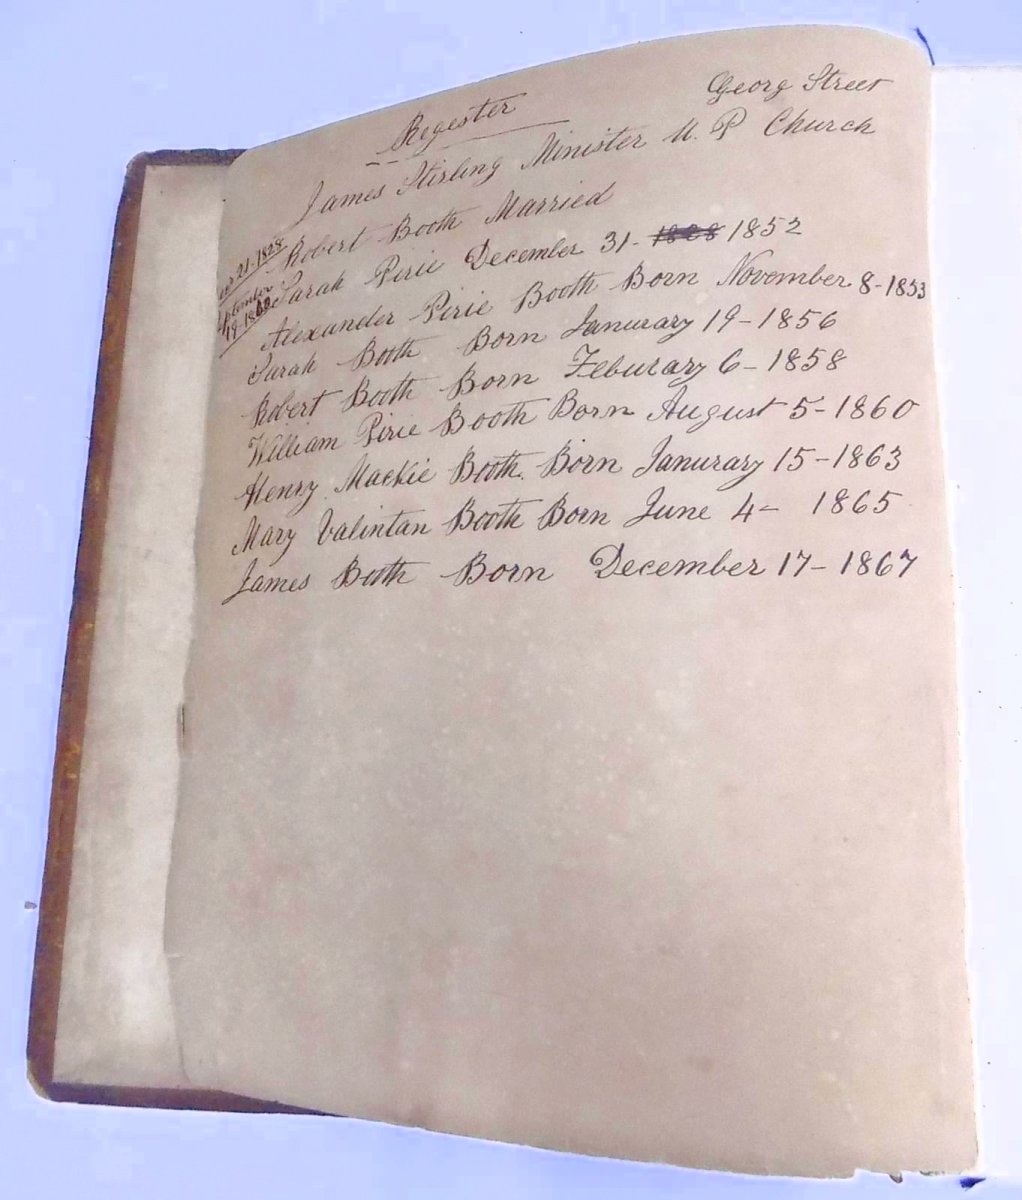 Regester
Georg Street
James Stirling Minister U. P Church
21-1828 Robert Booth Married
Sarah Pirie December 31- 1828 1852
Alexander Pirie Booth Born November 8-1853
Sarah Booth Born Janurary 19-1856
Robert Booth Born Feburary 6-1858
William Pirie Booth Born August 5-1860
Henry Mackie Booth Born Janurary 15-1863
Mary Valintan Booth Born June 4- 1865
James Booth Born December 17-1867